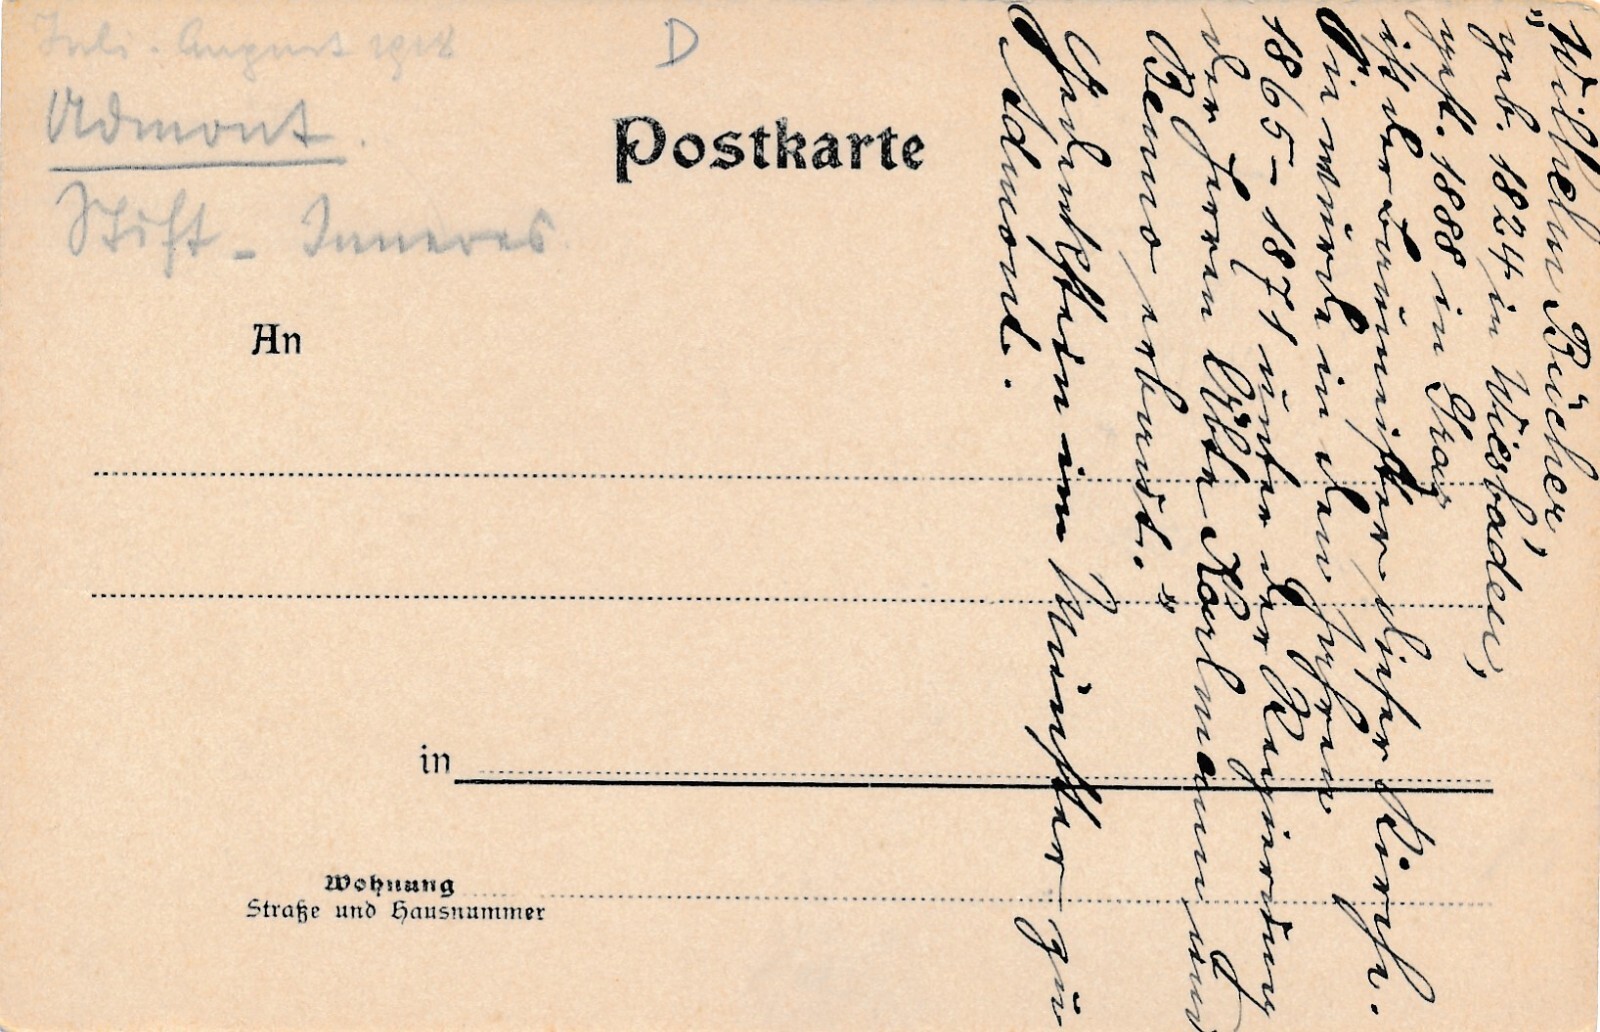 Juli - August 1918
D
Admont.
Stift - Inneres
Postkarte
An
in
Wohnung
Straße und Hausnummer
„Wilhelm Bücher,
geb. 1824 in Wiesbaden,
gest. 1888 in Graz
ist der Baumeister dieser Kirche.
Sie wurde in den Jahren
1865–1871 unter der Regierung
der Herren Äbte Karlmann und
Benno erbaut.“
Gedenkstein im Münster zu
Admont.